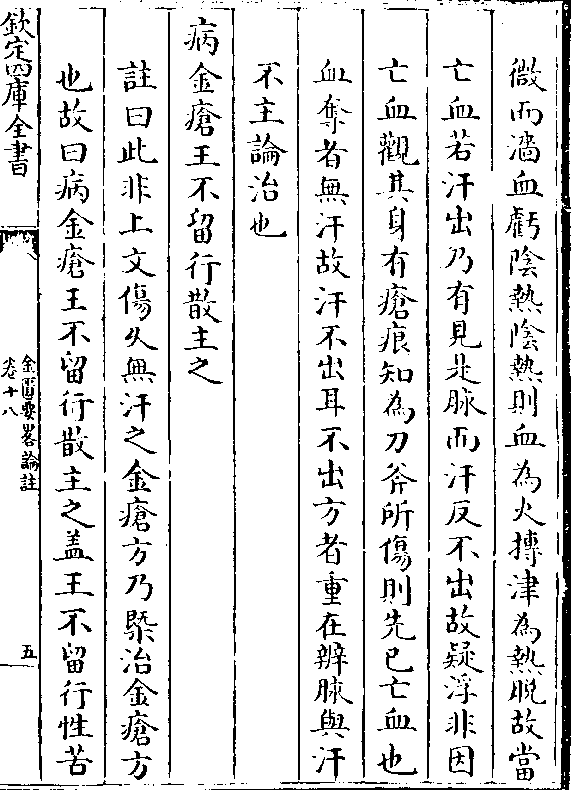 微而濇血虧陰熱陰熱則血為火摶津為熱脫故當
亡血若汗出乃有見是脉而汗反不出故疑浮非因
亡血觀其身有瘡痕知為刀斧所傷則先已亡血也
血奪者無汗故汗不出耳不出方者重在辨脉與汗
不主論治也
病金瘡王不留行散主之
註曰此非上文傷久無汗之金瘡方乃槩治金瘡方
也故曰病金瘡王不留行散主之盖王不留行性苦
欽定四庫全書
金匱要畧論註
卷十八
五